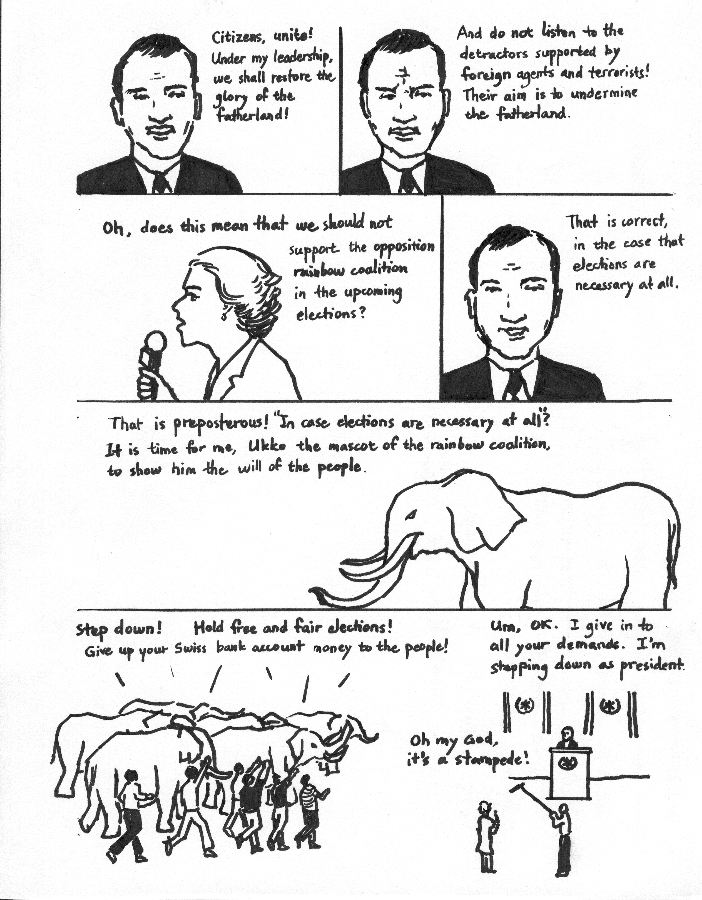 Citizens, unite!
Under my leadership,
we shall restore the
glory of the
fatherland!
And do not listen to the
detractors supported by
foreign agents and terrorists!
Their aim is to undermine
the fatherland.
Oh, does this mean that we should not
support the opposition
rainbow coalition
in the upcoming
elections?
That is correct,
in the case that
elections are
necessary at all.
That is preposterous! "In case elections are necessary at all"?
It is time for me, Ukko the mascot of the rainbow coalition,
to show him the will of the people.
Step down! Hold free and fair elections!
Give up your Swiss bank account money to the people!
Um, OK. I give in to
all your demands. I'm
stepping down as president.
Oh my God,
it's a stampede!